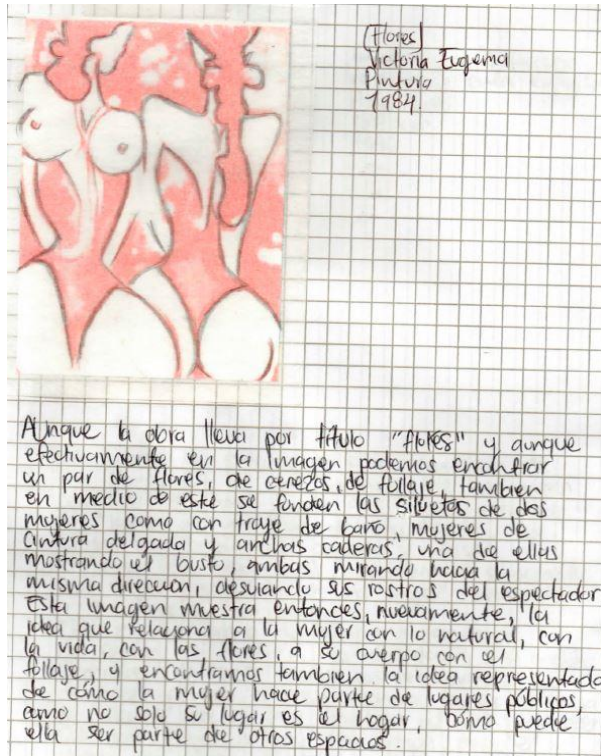 [Flores]
Victoria Eugenia
Pintura
1984.
Aunque la obra lleva por título "flores" y aunque
efectivamente en la imagen podemos encontrar
un par de flores, de cerezos, de follaje, tambien
en medio de este se funden las siluetas de dos
mujeres como con traje de baño, mujeres de
cintura delgada y anchas caderas, una de ellas
mostrando el busto, ambas mirando hacia la
misma direccion, desviando sus rostros del espectador
Esta imagen muestra entonces, nuevamente, la
idea que relaciona a la mujer con lo natural, con
la vida, con las flores, a su cuerpo con el
follaje, y encontramos tambien la idea representada
de como la mujer hace parte de lugares públicos,
como no solo su lugar es el hogar, como puede
ella ser parte de otros espacios.